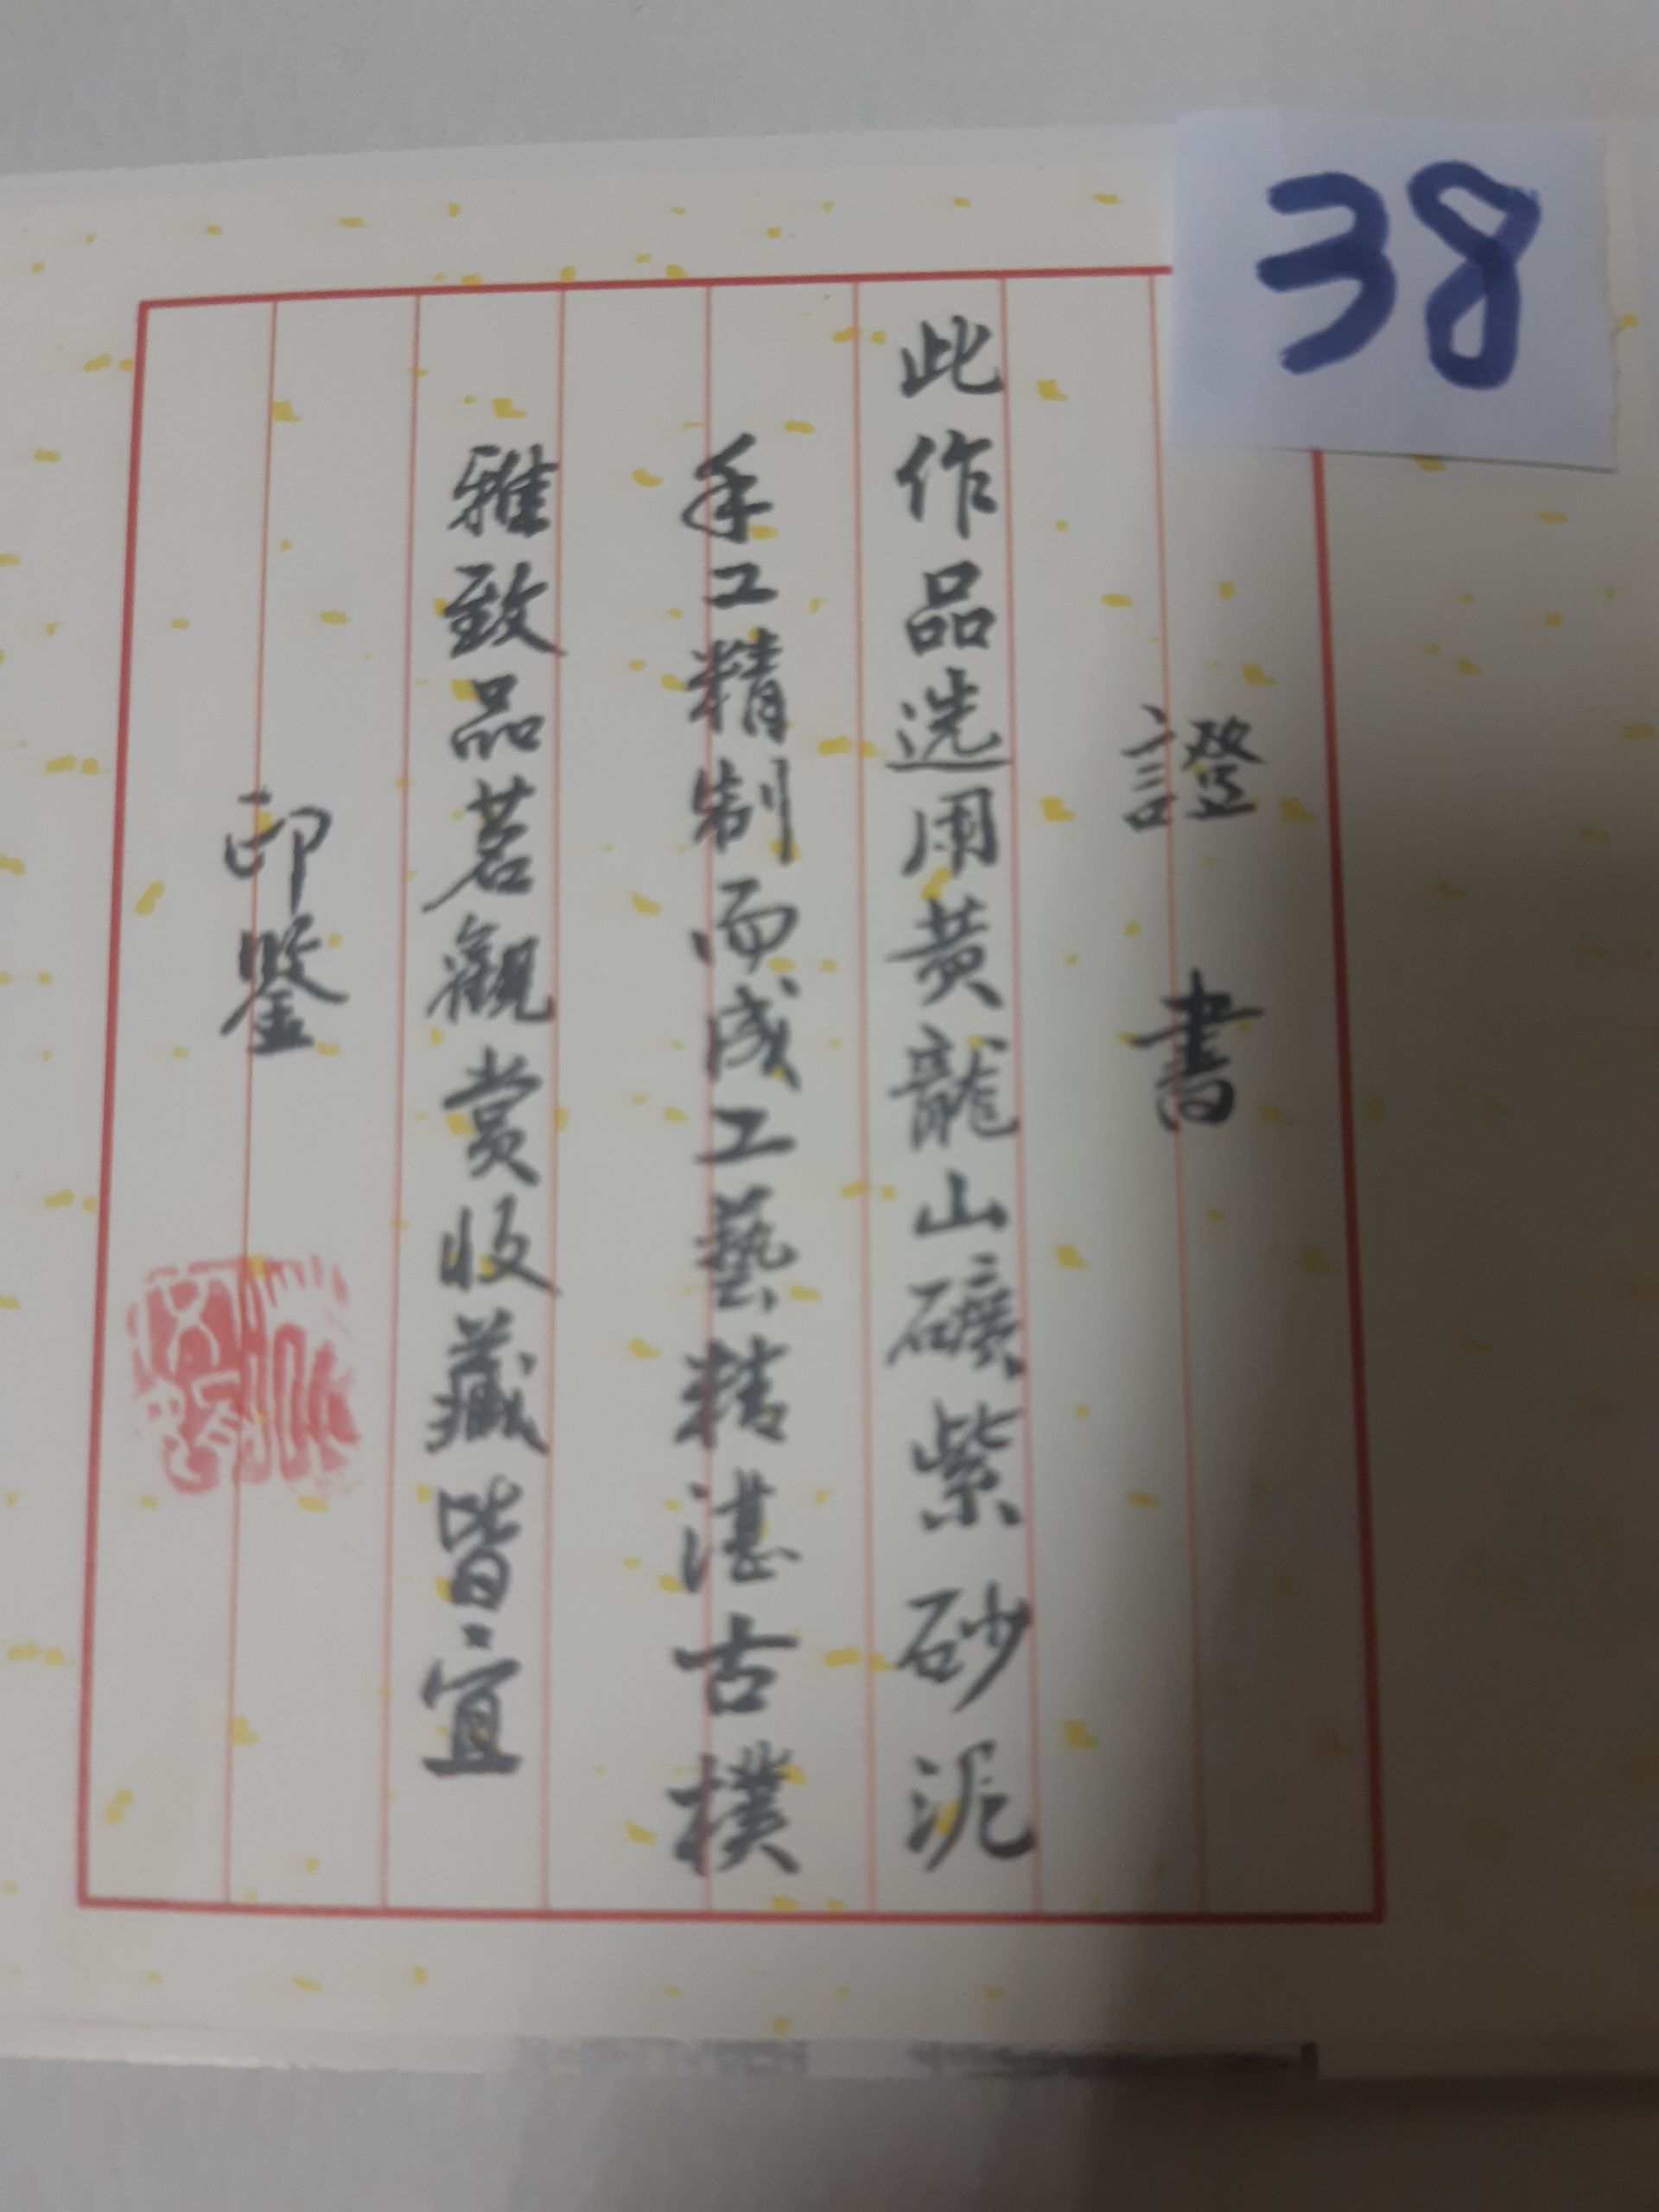 38
證書
此作品选用黄龍山礦紫砂泥
手工精制而成工藝精湛古樸
雅致品茗觀賞收藏皆宜
印鑒